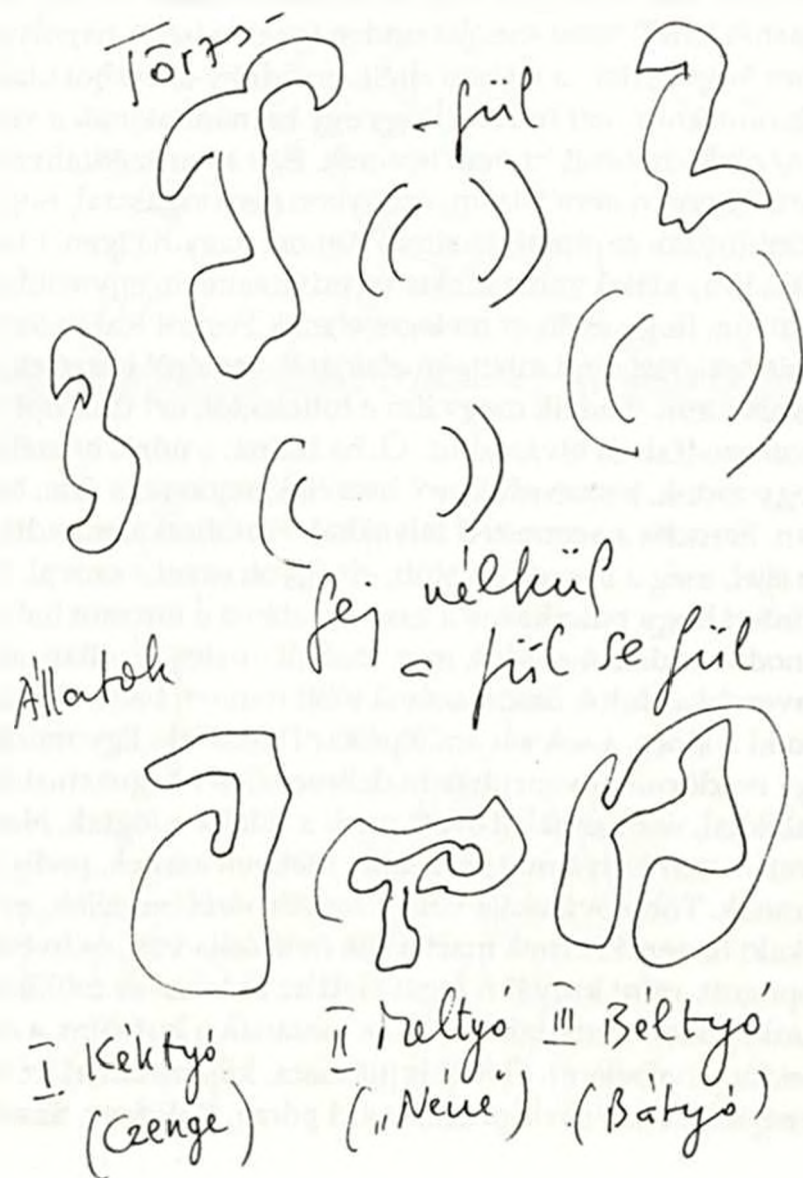 Törzs-
- fül
fej nélkül
- fül se fül
Állatok
I Kéktyó
(Czenge)
II Déltyó
("Néné")
III Béltyó
(Bátyó)